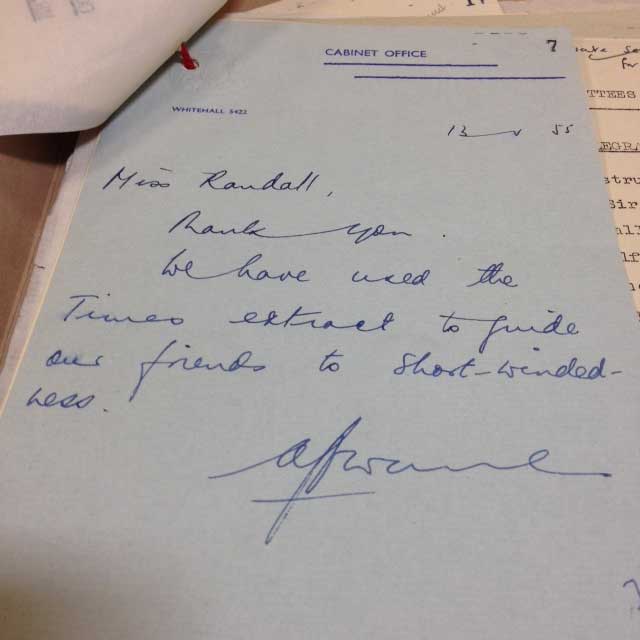 7
CABINET OFFICE
WHITEHALL 5422
13 v 55
Miss Randall,
Thank you.
We have used the
Times extract to guide
our friends to short-winded-
ness.
for
TTEES